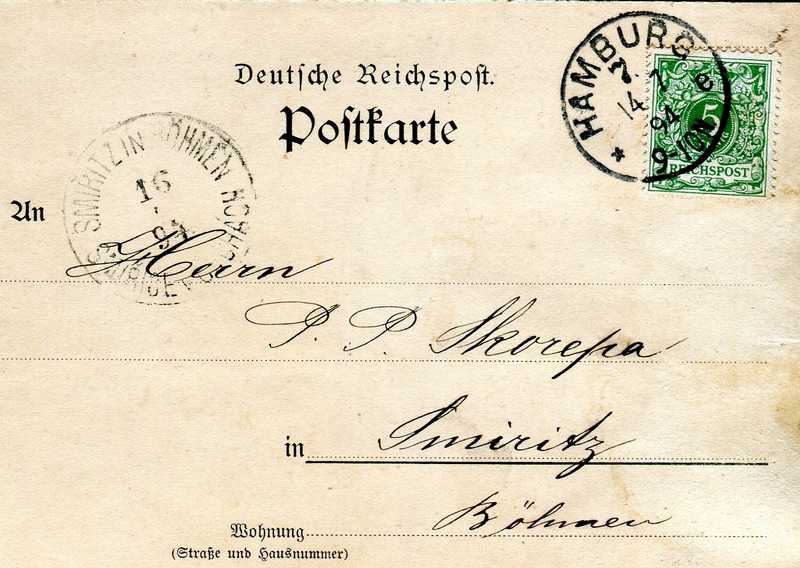 Deutsche Reichspost.
Postkarte
HAMBURG
7.
14 7 e
94
9-10N
*
5
REICHSPOST
SMIRITZ IN BÖHMEN
16
94
An Herrn
P. P. Skorepa
in Smiritz
Böhmen
Wohnung
(Straße und Hausnummer)